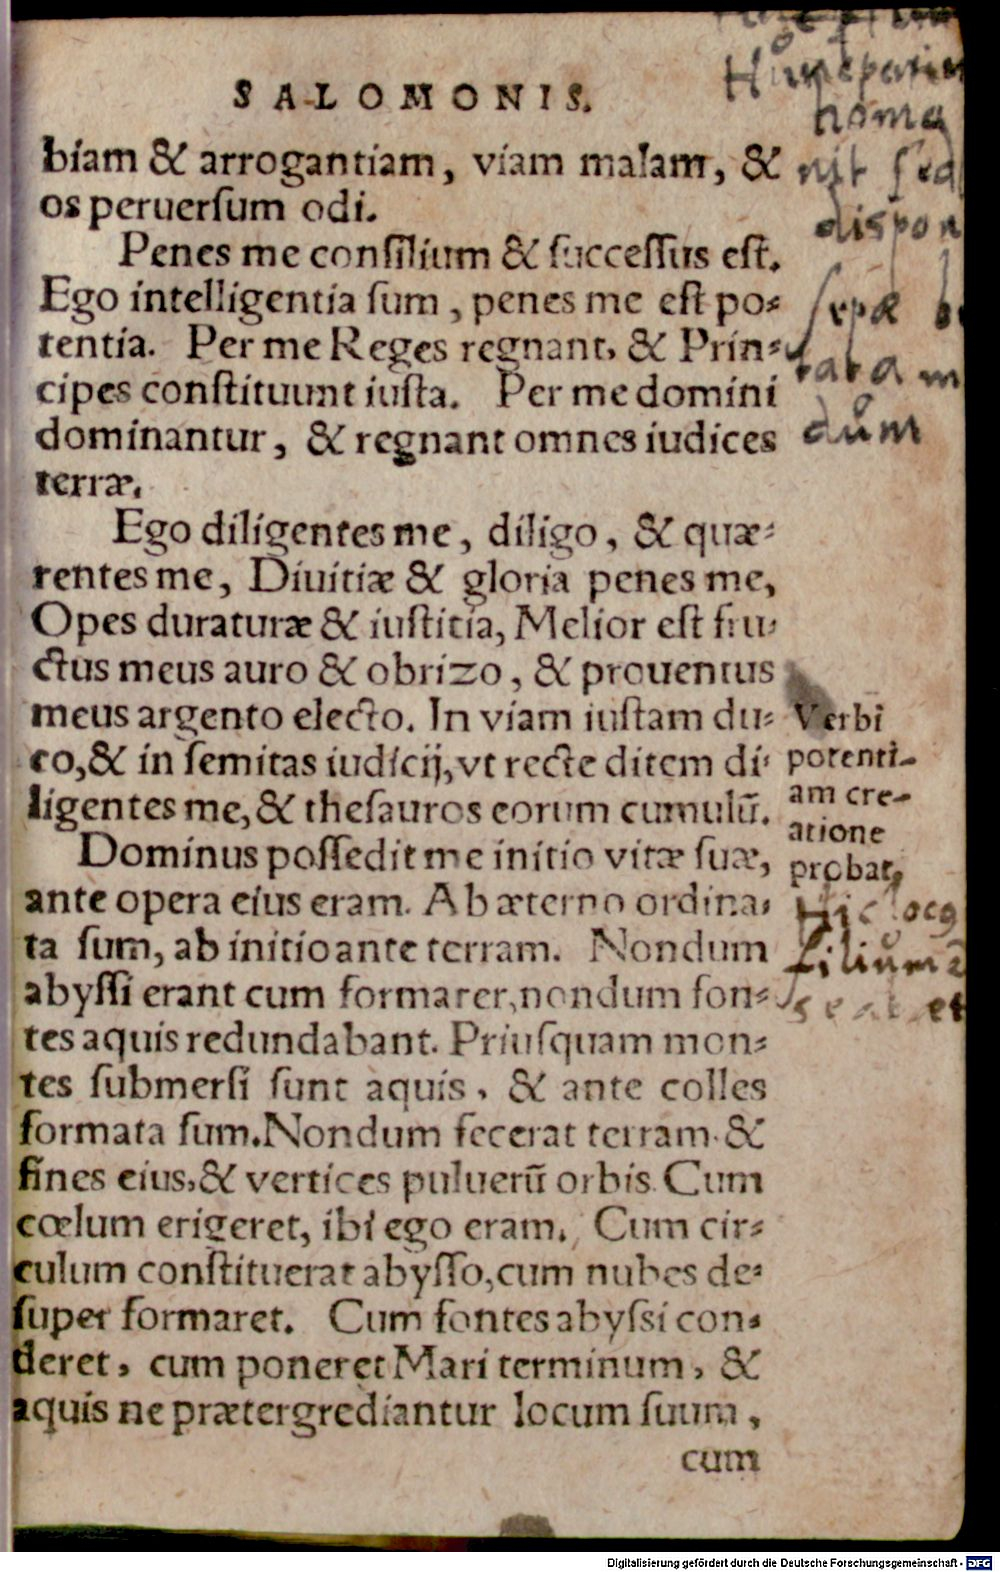 SALOMONIS.
biam & arrogantiam, viam malam, &
os peruersum odi.
Penes me consilium & successus est.
Ego intelligentia sum, penes me est po-
tentia. Per me Reges regnant, & Prin-
cipes constituunt iusta. Per me domini
dominantur, & regnant omnes iudices
terræ.
Ego diligentes me, diligo, & quæ-
rentes me, Diuitiæ & gloria penes me,
Opes duraturæ & iustitia, Melior est fru-
ctus meus auro & obrizo, & prouentus
meus argento electo. In viam iustam du-
co, & in semitas iudicij, vt recte ditem di-
ligentes me, & thesauros eorum cumulū.
Dominus possedit me initio vitæ suæ,
ante opera eius eram. Ab æterno ordina-
ta sum, ab initio ante terram. Nondum
abyssi erant cum formarer, nondum fon-
tes aquis redundabant. Priusquam mon-
tes submersi sunt aquis, & ante colles
formata sum. Nondum fecerat terram &
fines eius, & vertices puluerū orbis. Cum
cœlum erigeret, ibi ego eram. Cum cir-
culum constituerat abysso, cum nubes de-
super formaret. Cum fontes abyssi con-
deret, cum poneret Mari terminum, &
aquis ne prætergrediantur locum suum,
cum
homa
nit sed
dispon
dům
Verbi
potenti-
am cre-
atione
probat,
Hic locꝰ
filium
Digitalisierung gefördert durch die Deutsche Forschungsgemeinschaft - DFG